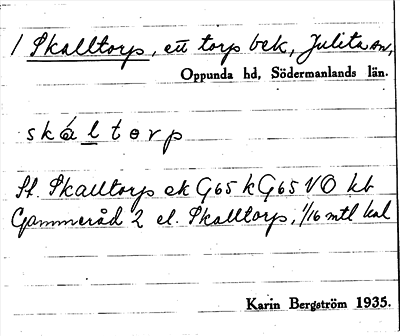 1 Skalltorp, ett torp bek, Julita sn,
Oppunda hd, Södermanlands län.
skáltɵrp
Sf. Skalltorp ek G65 k G65 VO kb
Gammeråd 2 el. Skalltorp, 1/16 mtl kal
Karin Bergström 1935.